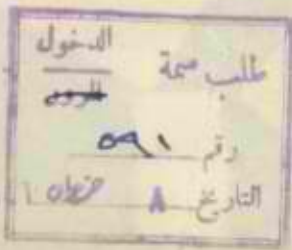 طلب سمة الدخول
المرور
رقم ٥٩١
التاريخ ٨ حزيران ١